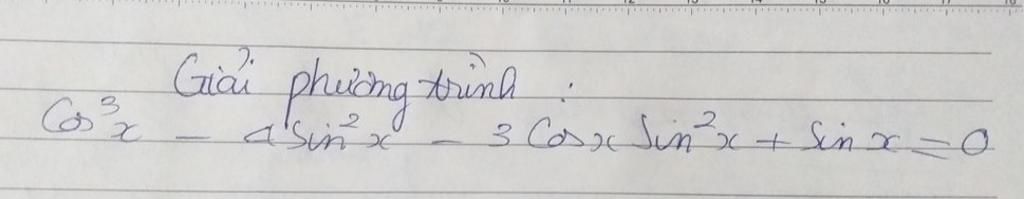 Giải phương trình :
Cos³x - 4 Sin²x - 3 Cosx Sin²x + Sin x = 0